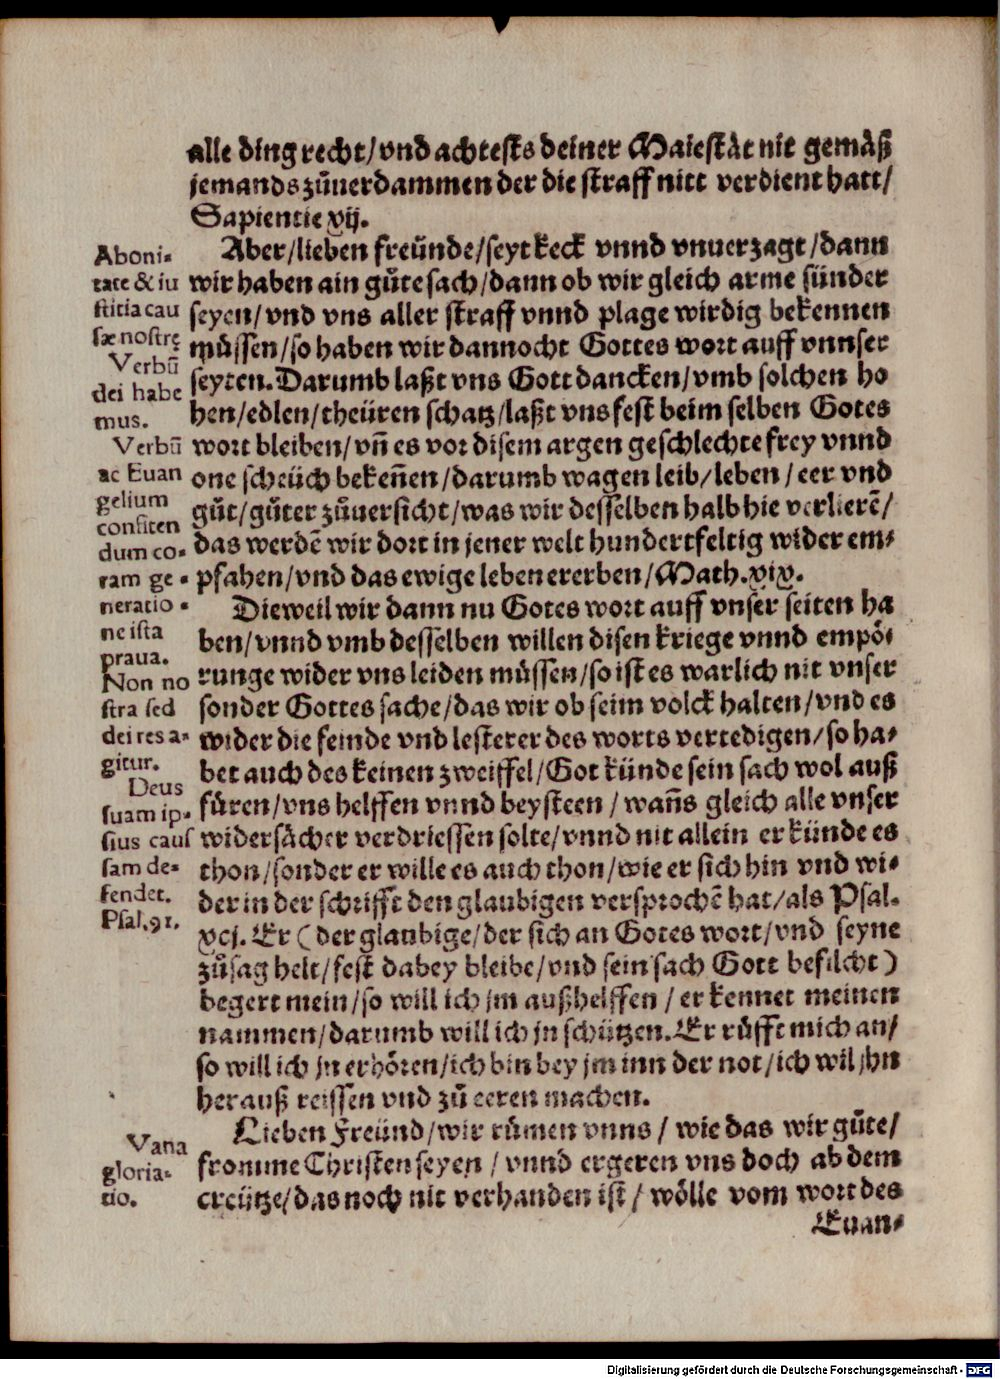 alle ding recht/vnd achtests deiner Maiestät nit gemäß
jemands zůuerdammen der die straff nitt verdient hatt/
Sapientie xij.
Aber/lieben freünde/seyt keck vnnd vnuerzagt/dann
wir haben ain gůte sach/dann ob wir gleich arme sünder
seyen/vnd vns aller straff vnnd plage wirdig bekennen
müssen/so haben wir dannocht Gottes wort auff vnnser
seyten. Darumb laßt vns Gott dancken/vmb solchen ho
hen/edlen/theüren schatz/laßt vns fest beim selben Gotes
wort bleiben/vñ es vor disem argen geschlechte frey vnnd
one scheüch bekeñen/darumb wagen leib/leben/eer vnd
gůt/gůter zůuersicht/was wir desselben halb hie verlierẽ/
das werdẽ wir dort in jener welt hundertfeltig wider em⸗
pfahen/vnd das ewige leben ererben/Math.xix.
Dieweil wir dann nu Gotes wort auff vnser seiten ha
ben/vnnd vmb desselben willen disen kriege vnnd empö⸗
runge wider vns leiden müssen/so ist es warlich nit vnser
sonder Gottes sache/das wir ob seim volck halten/vnd es
wider die feinde vnd lesterer des worts vertedigen/so ha⸗
bet auch des keinen zweiffel/Got künde sein sach wol auß
füren/vns helffen vnnd beysteen/wañs gleich alle vnser
widersächer verdriessen solte/vnnd nit allein er künde es
thon/sonder er wille es auch thon/wie er sich hin vnd wi⸗
der in der schrifft den glaubigen versprochẽ hat/als Psal.
xcj. Er (der glaubige/der sich an Gotes wort/vnd seyne
zůsag helt/fest dabey bleibe/vnd sein sach Gott befilcht)
begert mein/so will ich jm außhelffen/er kennet meinen
nammen/darumb will ich jn schützen. Er růfft mich an/
so will ich jn erhören/ich bin bey jm inn der not/ich wil jhn
herauß reissen vnd zů eeren machen.
Lieben Freünd/wir rümen vnns/wie das wir gůte/
fromme Christen seyen/vnnd ergeren vns doch ab dem
creütze/das noch nit verhanden ist/wölle vom wort des
Euan⸗
Aboni⸗
tate & iu
stitia cau
sæ nostrę
Verbũ
dei habe
mus.
Verbũ
ac Euan
gelium
confiten
dum co⸗
ram ge⸗
neratio⸗
ne ista
praua.
Non no
stra sed
dei res a⸗
gitur.
Deus
suam ip⸗
sius caus
sam de⸗
fendet.
Psal.91.
Vana
gloria⸗
tio.
Digitalisierung gefördert durch die Deutsche Forschungsgemeinschaft - DFG